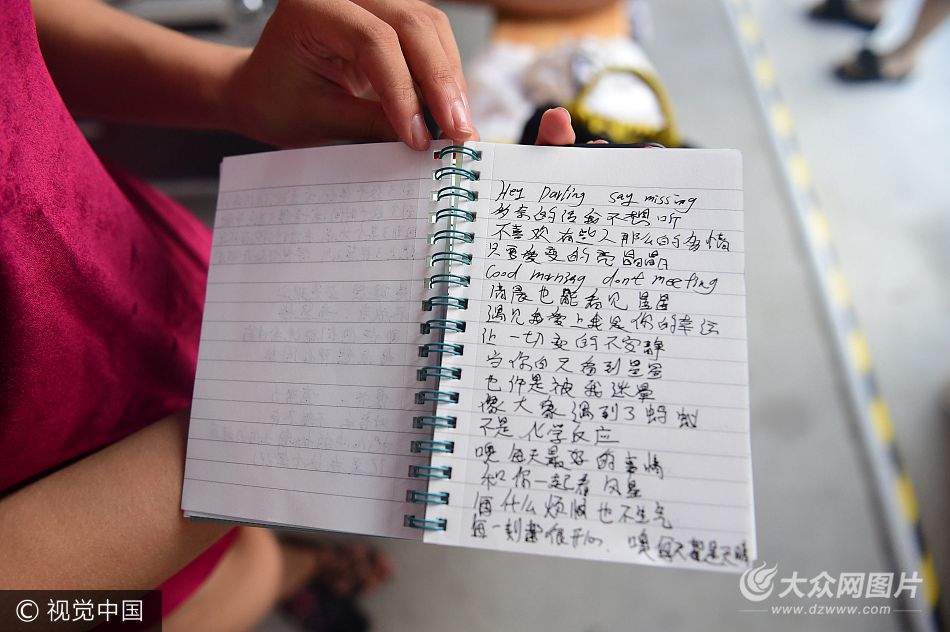 Hey Darling say missing
多余的话我不想听
不喜欢有些人那么的多情
只要爱变的亮晶晶
Good morning dont meeting
清晨也能看见星星
遇见我爱上我是你的幸运
让一切变的不安静
当你的只看到星星
也许是被我迷晕
像大家遇到了蚂蚁
不是化学反应
噢每天最好的事情
和你一起看风景
什么烦恼也不生气
每一刻都很开心 噢每天都是天晴
© 视觉中国
大众网图片
www.dzwww.com